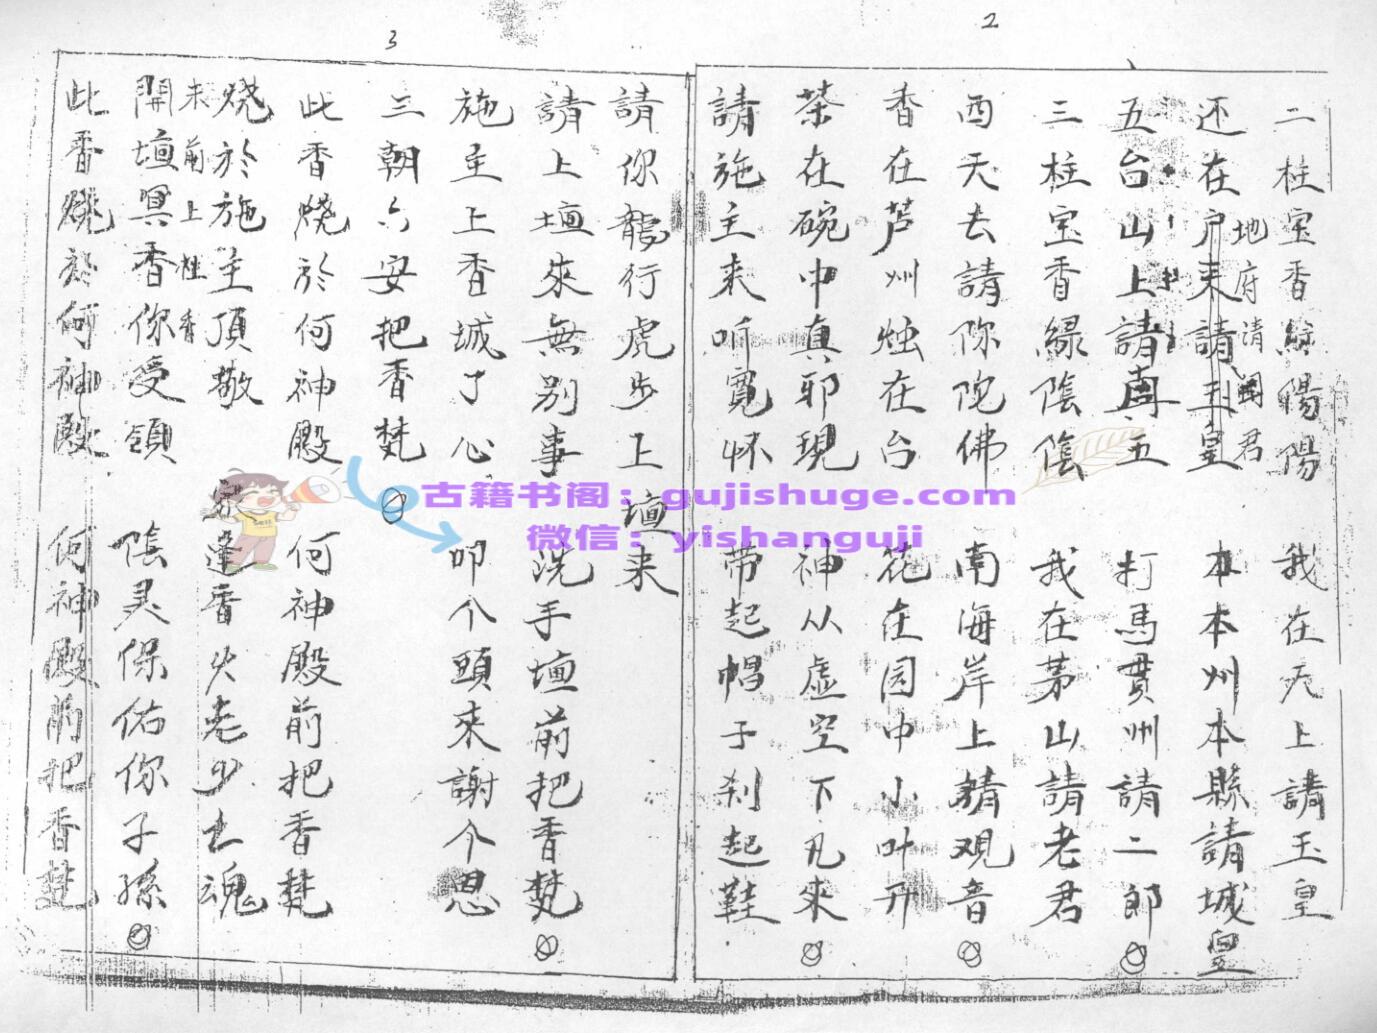 2
二柱宝香緑陽陽 我在天上請玉皇
还在户来請玉皇 本本州本縣請城皇
地府请阎君
五台山上請真五 打馬貫州請二郎
三柱宝香緑陰陰 我在茅山請老君
西天去請弥陀佛 南海岸上請观音
香在芦州烛在台 花在园中小叶开
茶在碗中真耶現 神从虚空下凡來
請施主来听寬怀 带起帽子刹起鞋
3
請你龍行虎步上壇来
請上壇來無别事 洗手壇前把香焚
施主上香城了心 叩个頭來謝个恩
三朝六安把香焚
此香燒於何神殿 何神殿前把香焚
燒於施主頂敬 逢香火老少土魂
未前上柱香
開壇冥香你受領 陰灵保佑你子孫
此香燒於何神殿 何神殿前把香焚
古籍书阁：gujishuge.com
微信：yishanguji